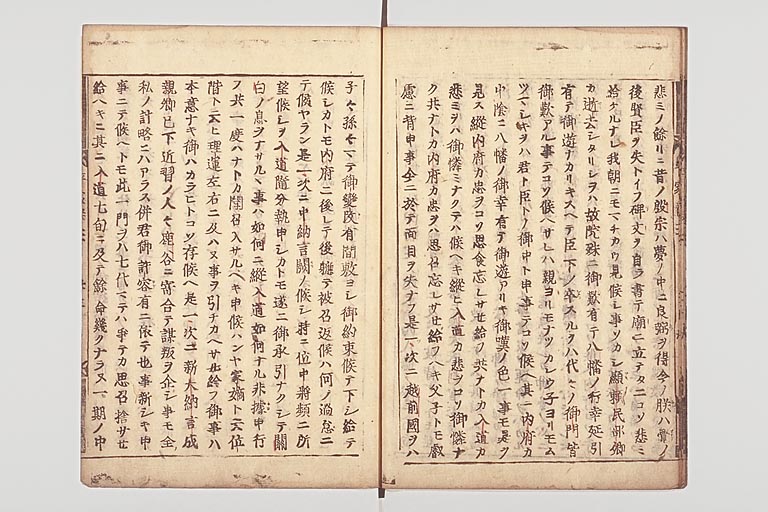 悲ミノ餘リニ昔ノ殷宗ハ夢ノ中ニ良弼ヲ得今ノ朕ハ覺ノ
後賢臣ヲ失トイフ碑文ヲ自ラ書テ廟ニ立テタニコソ悲ミ
給ケルナレ我朝ニモマチカウ見候シ事ソカシ顯頼民部卿
カ逝去シタリシヲハ故院殊ニ御歎有テ八幡ノ行幸延引
有テ御遊ナカリキスヘテ臣下ノ卒スルヲハ代々ノ御門皆
御歎アル事テコソ候ヘサレハ親ヨリモナツカシウ子ヨリモム
ツマシキヲハ君ト臣トノ御中ト申事テコソ候ヘ其ニ内府カ
中陰ニ八幡ノ御幸有テ御遊アリキ御歎ノ色一事モ是ヲ
見ス縱内府カ忠ヲコソ思食忘レサセ給フ共ナトカ入道カ
悲ミヲハ御憐ミナクテハ候ヘキ縱ヒ入道カ悲ヲコソ御憐ナ
ク共ナトカ内府カ忠ヲハ思召忘レサセ給フヘキ父子トモ叡
慮ニ背申事全ニ於テ面目ヲ失ナフ是一次ニ越前國ヲハ
子々孫々マテ御變改有間敷ヨシ御約束候テ下シ給テ
候シカトモ内府ニ後レテ後軈テ被召返候ハ何ノ過怠ニ
テ候ヤラン是一次ニ中納言闕ノ候シ時二位中將頻ニ所
望候シヲ入道隨分執申シカトモ遂ニ御承引ナクシテ關
白ノ息ヲナサルヽ事ハ如何ニ縱入道如何ナル非據申行
フ共一度ハナトカ聞召入サルヘキ申候ハンヤ家嫡ト云位
階ト云ヒ理運左右ニ及ハヌ事ヲ引チカヘサセ給フ御事ハ
本意ナキ御ハカラヒトコソ存候ヘ是一次ニ新大納言成
親卿已下近習ノ人々鹿谷ニ寄合テ謀叛ヲ企シ事モ全
私ノ計略ニハアラス併君御許容有ニ依テ也事新シキ申
事ニテ候ヘトモ此一門ヲハ七代マテハ爭テカ思召捨サセ
給ハヘキニ其ニ入道七旬ニ及テ餘命幾クナラヌ一期ノ中